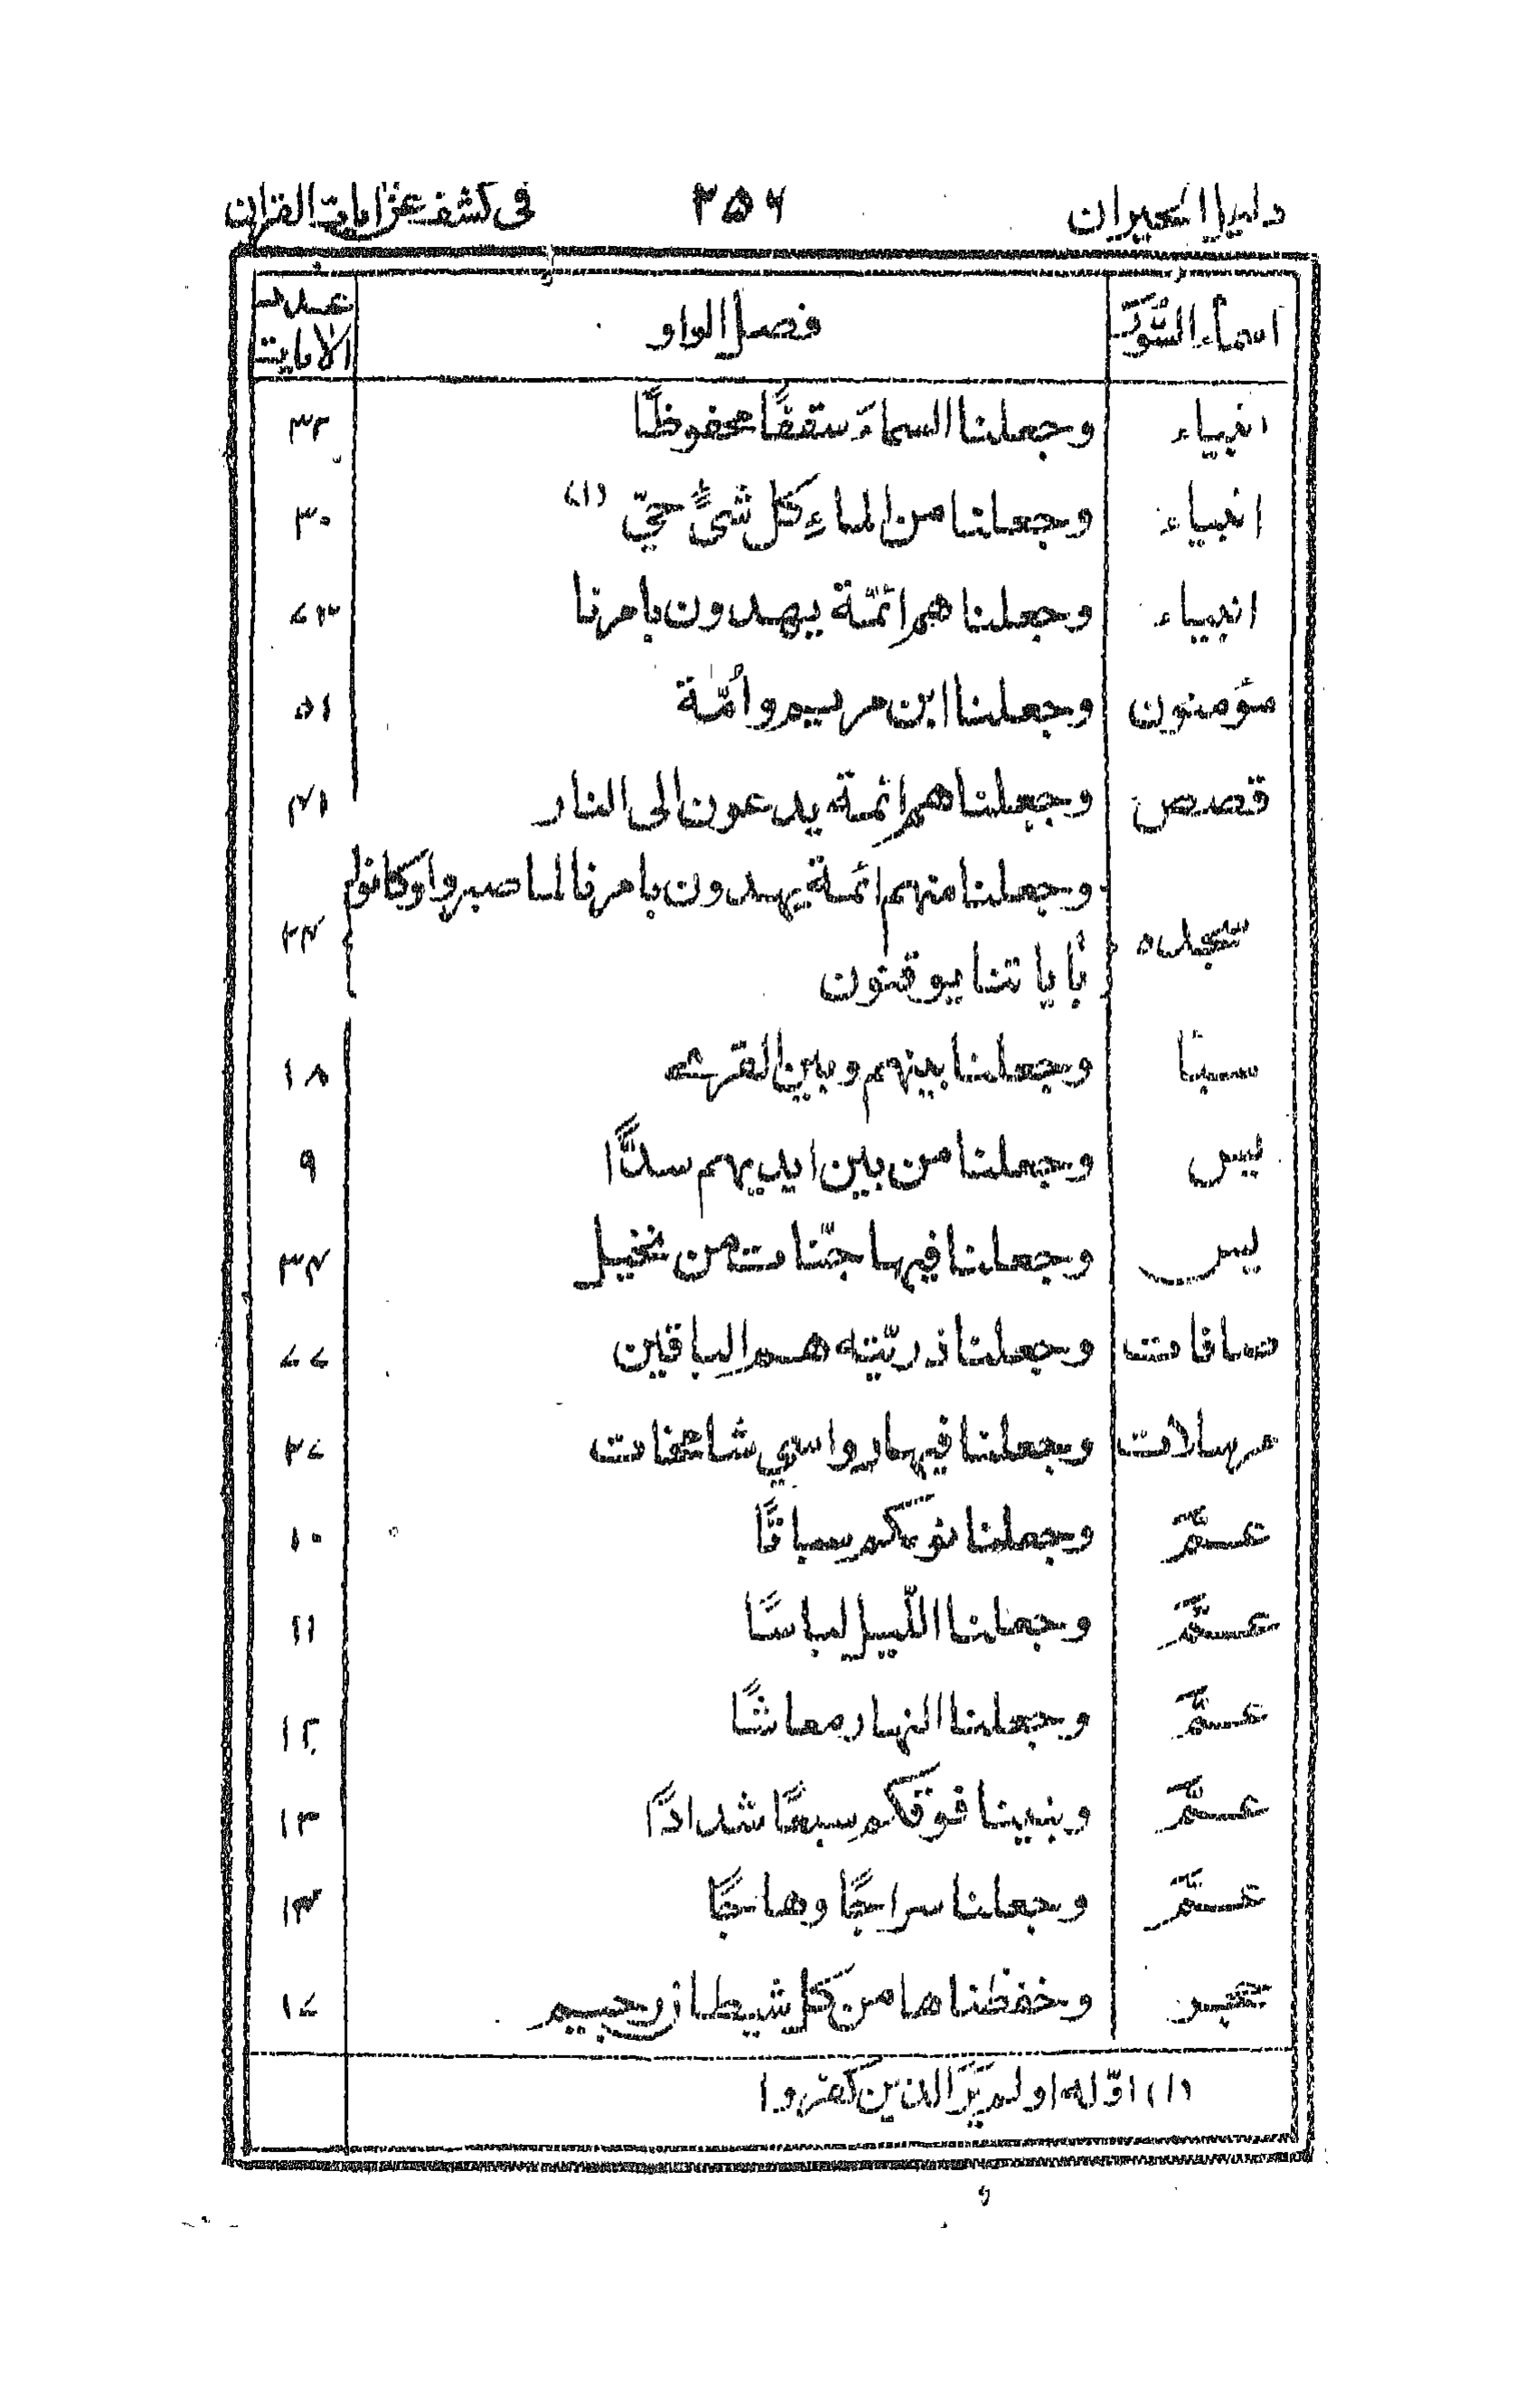 دليل الحيران ٣٥٦ فى كشف عن ايات القران
اسماء السُّوَر فصل الواو عدد الايات
انبياء وجعلنا السماءَ سقفًا محفوظًا ٣٢
انبياء وجعلنا من الماءِ كل شىءٍ حيّ (١) ٣٠
انبياء وجعلنا هم ائمّة يهدون بامرنا ٧٣
مؤمنون وجعلنا ابن مريم وأمّة ٥١
قصص وجعلنا هم ائمة يدعون الى النار ٤١
سجده وجعلنا منهم ائمة يهدون بامرنا لما صبروا وكانوا ٢٤
بايا تنا يوقنون
سبا وجعلنا بينهم وبين القرى ١٨
يس وجعلنا من بين ايديهم سدًّا ٩
يس وجعلنا فيها جنّات من نخيل ٣٤
صافات وجعلنا ذريّته هم الباقين ٧٧
مرسلات وجعلنا فيها رواسي شامخات ٢٧
عمَّ وجعلنا نومكم سباتًا ١٠
عمَّ وجعلنا اللّيل لباسًا ١١
عمَّ وجعلنا النهار معاشًا ١٢
عمَّ وبنينا فوقكم سبعًا شدادًا ١٣
عمَّ وجعلنا سراجًا وهاجًا ١٣
حجر وحفظنا ها من كل شيطان رجيم ١٧
(١) اوّله اولم يَرَ الذين كفروا